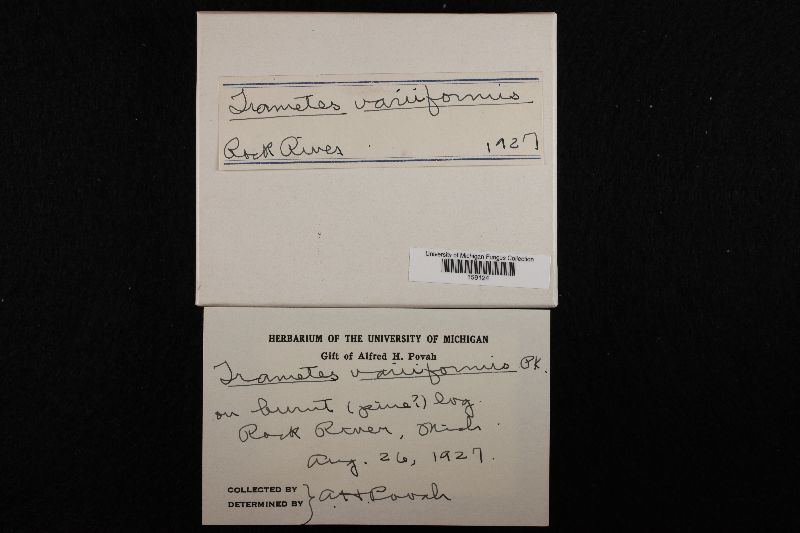 Trametes variiformis
Rock River 1927
University of Michigan Fungus Collection
HERBARIUM OF THE UNIVERSITY OF MICHIGAN
Gift of Alfred H. Povah
Trametes variiformis Pk.
on burnt (pine?) log.
Rock River, Mich.
Aug. 26, 1927.
COLLECTED BY
DETERMINED BY } AHPovah